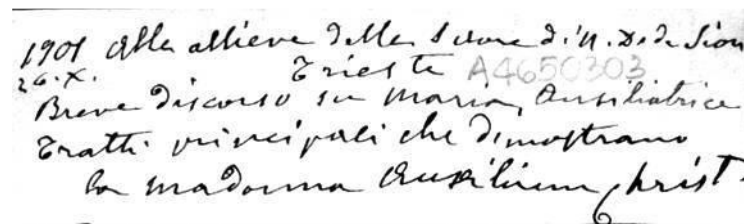 1901 Alle allieve delle Suore di N. D. de Sion
26.X. Trieste A4650303
Breve discorso su Maria, Ausiliatrice
Tratti principali che dimostrano
la madonna Auxilium Christ.